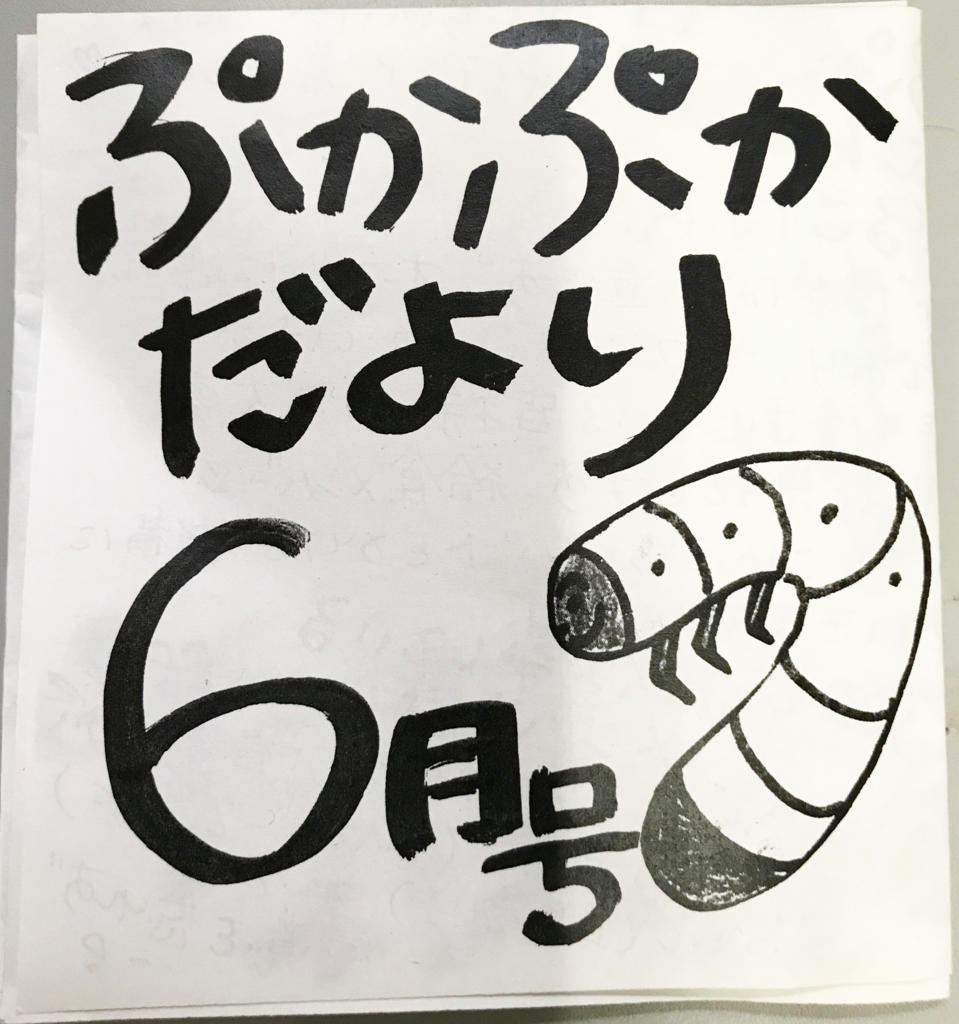 ぷかぷか
だより
6月号